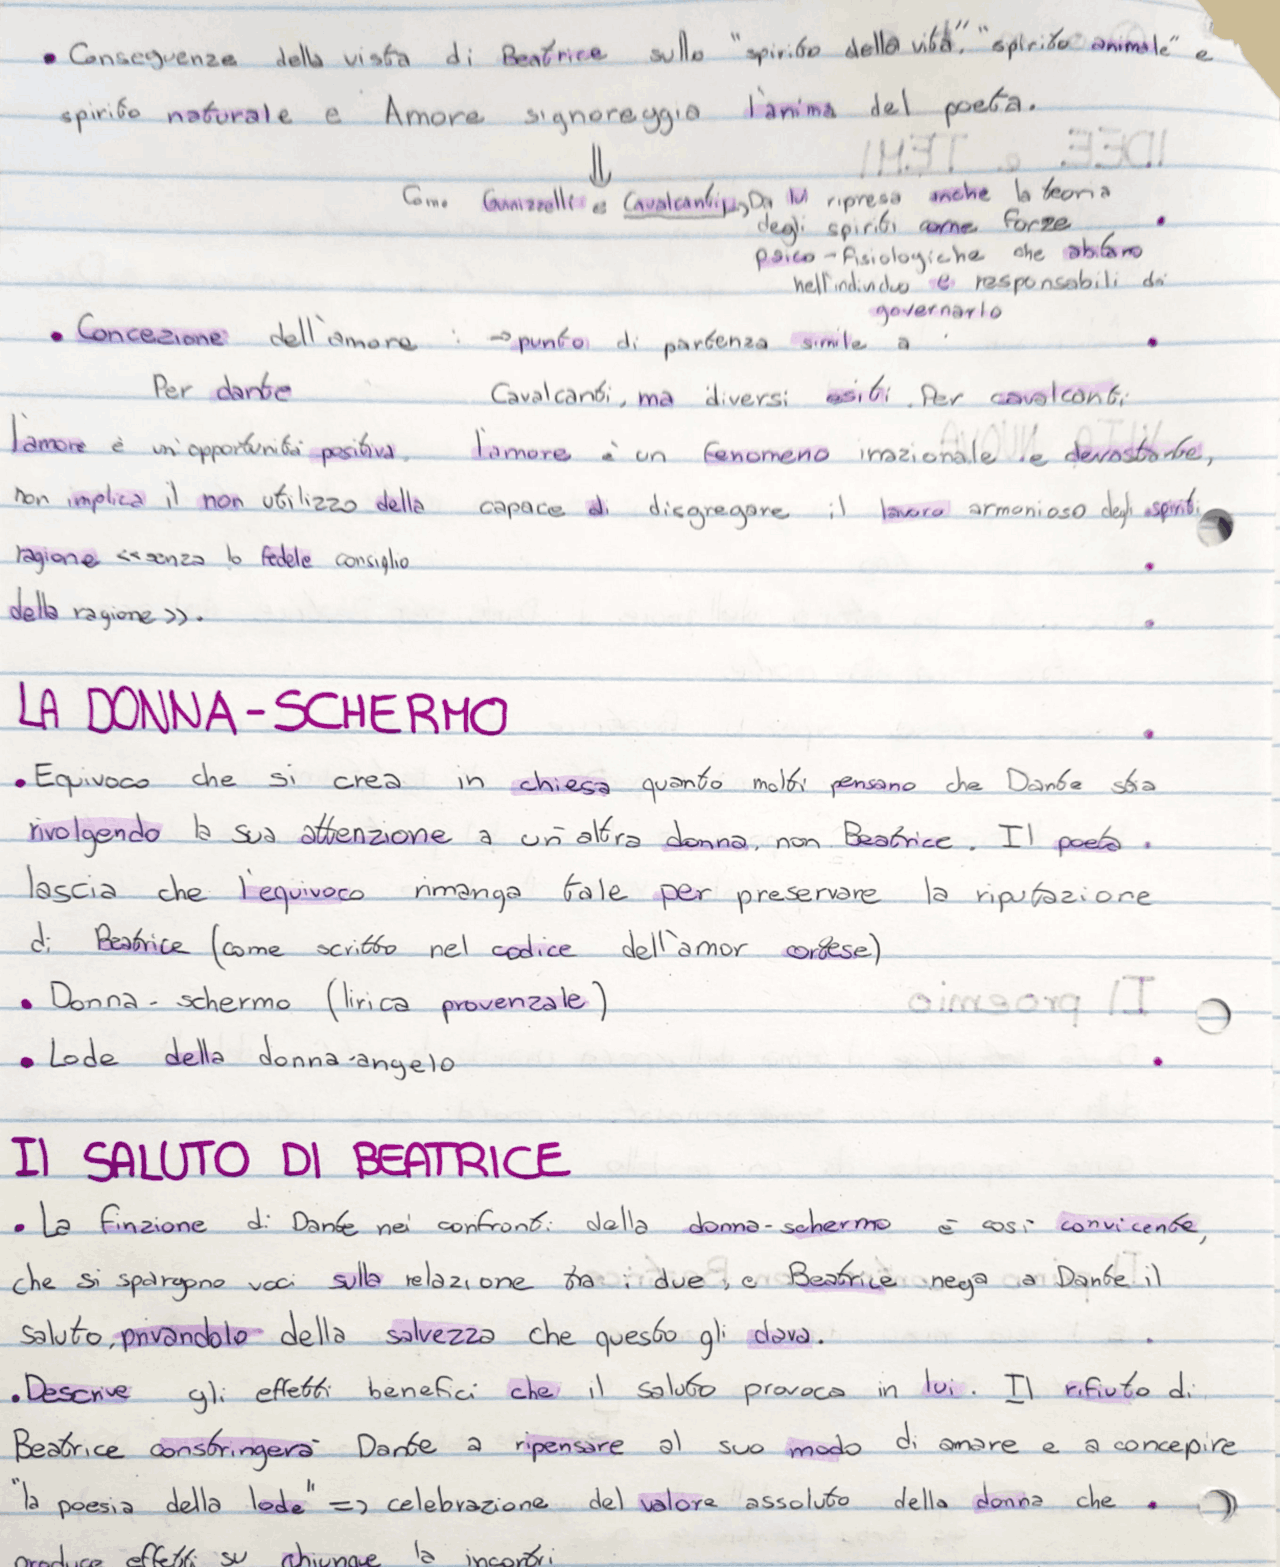 • Conseguenze della vista di Beatrice sullo "spirito della vita", "spirito animale" e
spirito naturale e Amore signoreggia l'anima del poeta.
⇓
Come Guinizzelli e Cavalcanti → Da lui ripresa anche la teoria
degli spiriti come forze
psico-fisiologiche che abitano
nell'individuo e responsabili di
governarlo
• Concezione dell'amore : → punto di partenza simile a
Per dante Cavalcanti, ma diversi esiti. Per cavalcanti
l'amore è un'opportunità positiva, l'amore è un fenomeno irrazionale e devastante,
non implica il non utilizzo della capace di disgregare il lavoro armonioso degli spiriti
ragione <<senza lo fedele consiglio
della ragione>>.
LA DONNA-SCHERMO
• Equivoco che si crea in chiesa quanto molti pensano che Dante stia
rivolgendo la sua attenzione a un'altra donna, non Beatrice. Il poeta
lascia che l'equivoco rimanga tale per preservare la riputazione
di Beatrice (come scritto nel codice dell'amor cortese)
• Donna-schermo (lirica provenzale)
• Lode della donna-angelo
Il SALUTO DI BEATRICE
• La finzione di Dante nei confronti della donna-schermo è così convicente,
che si spargono voci sulla relazione tra i due, e Beatrice nega a Dante il
saluto, privandolo della salvezza che questo gli dava.
• Descrive gli effetti benefici che il saluto provoca in lui. Il rifiuto di
Beatrice constringerà Dante a ripensare al suo modo di amare e a concepire
"la poesia della lode" => celebrazione del valore assoluto della donna che
produce effetti su chiunque la incontri